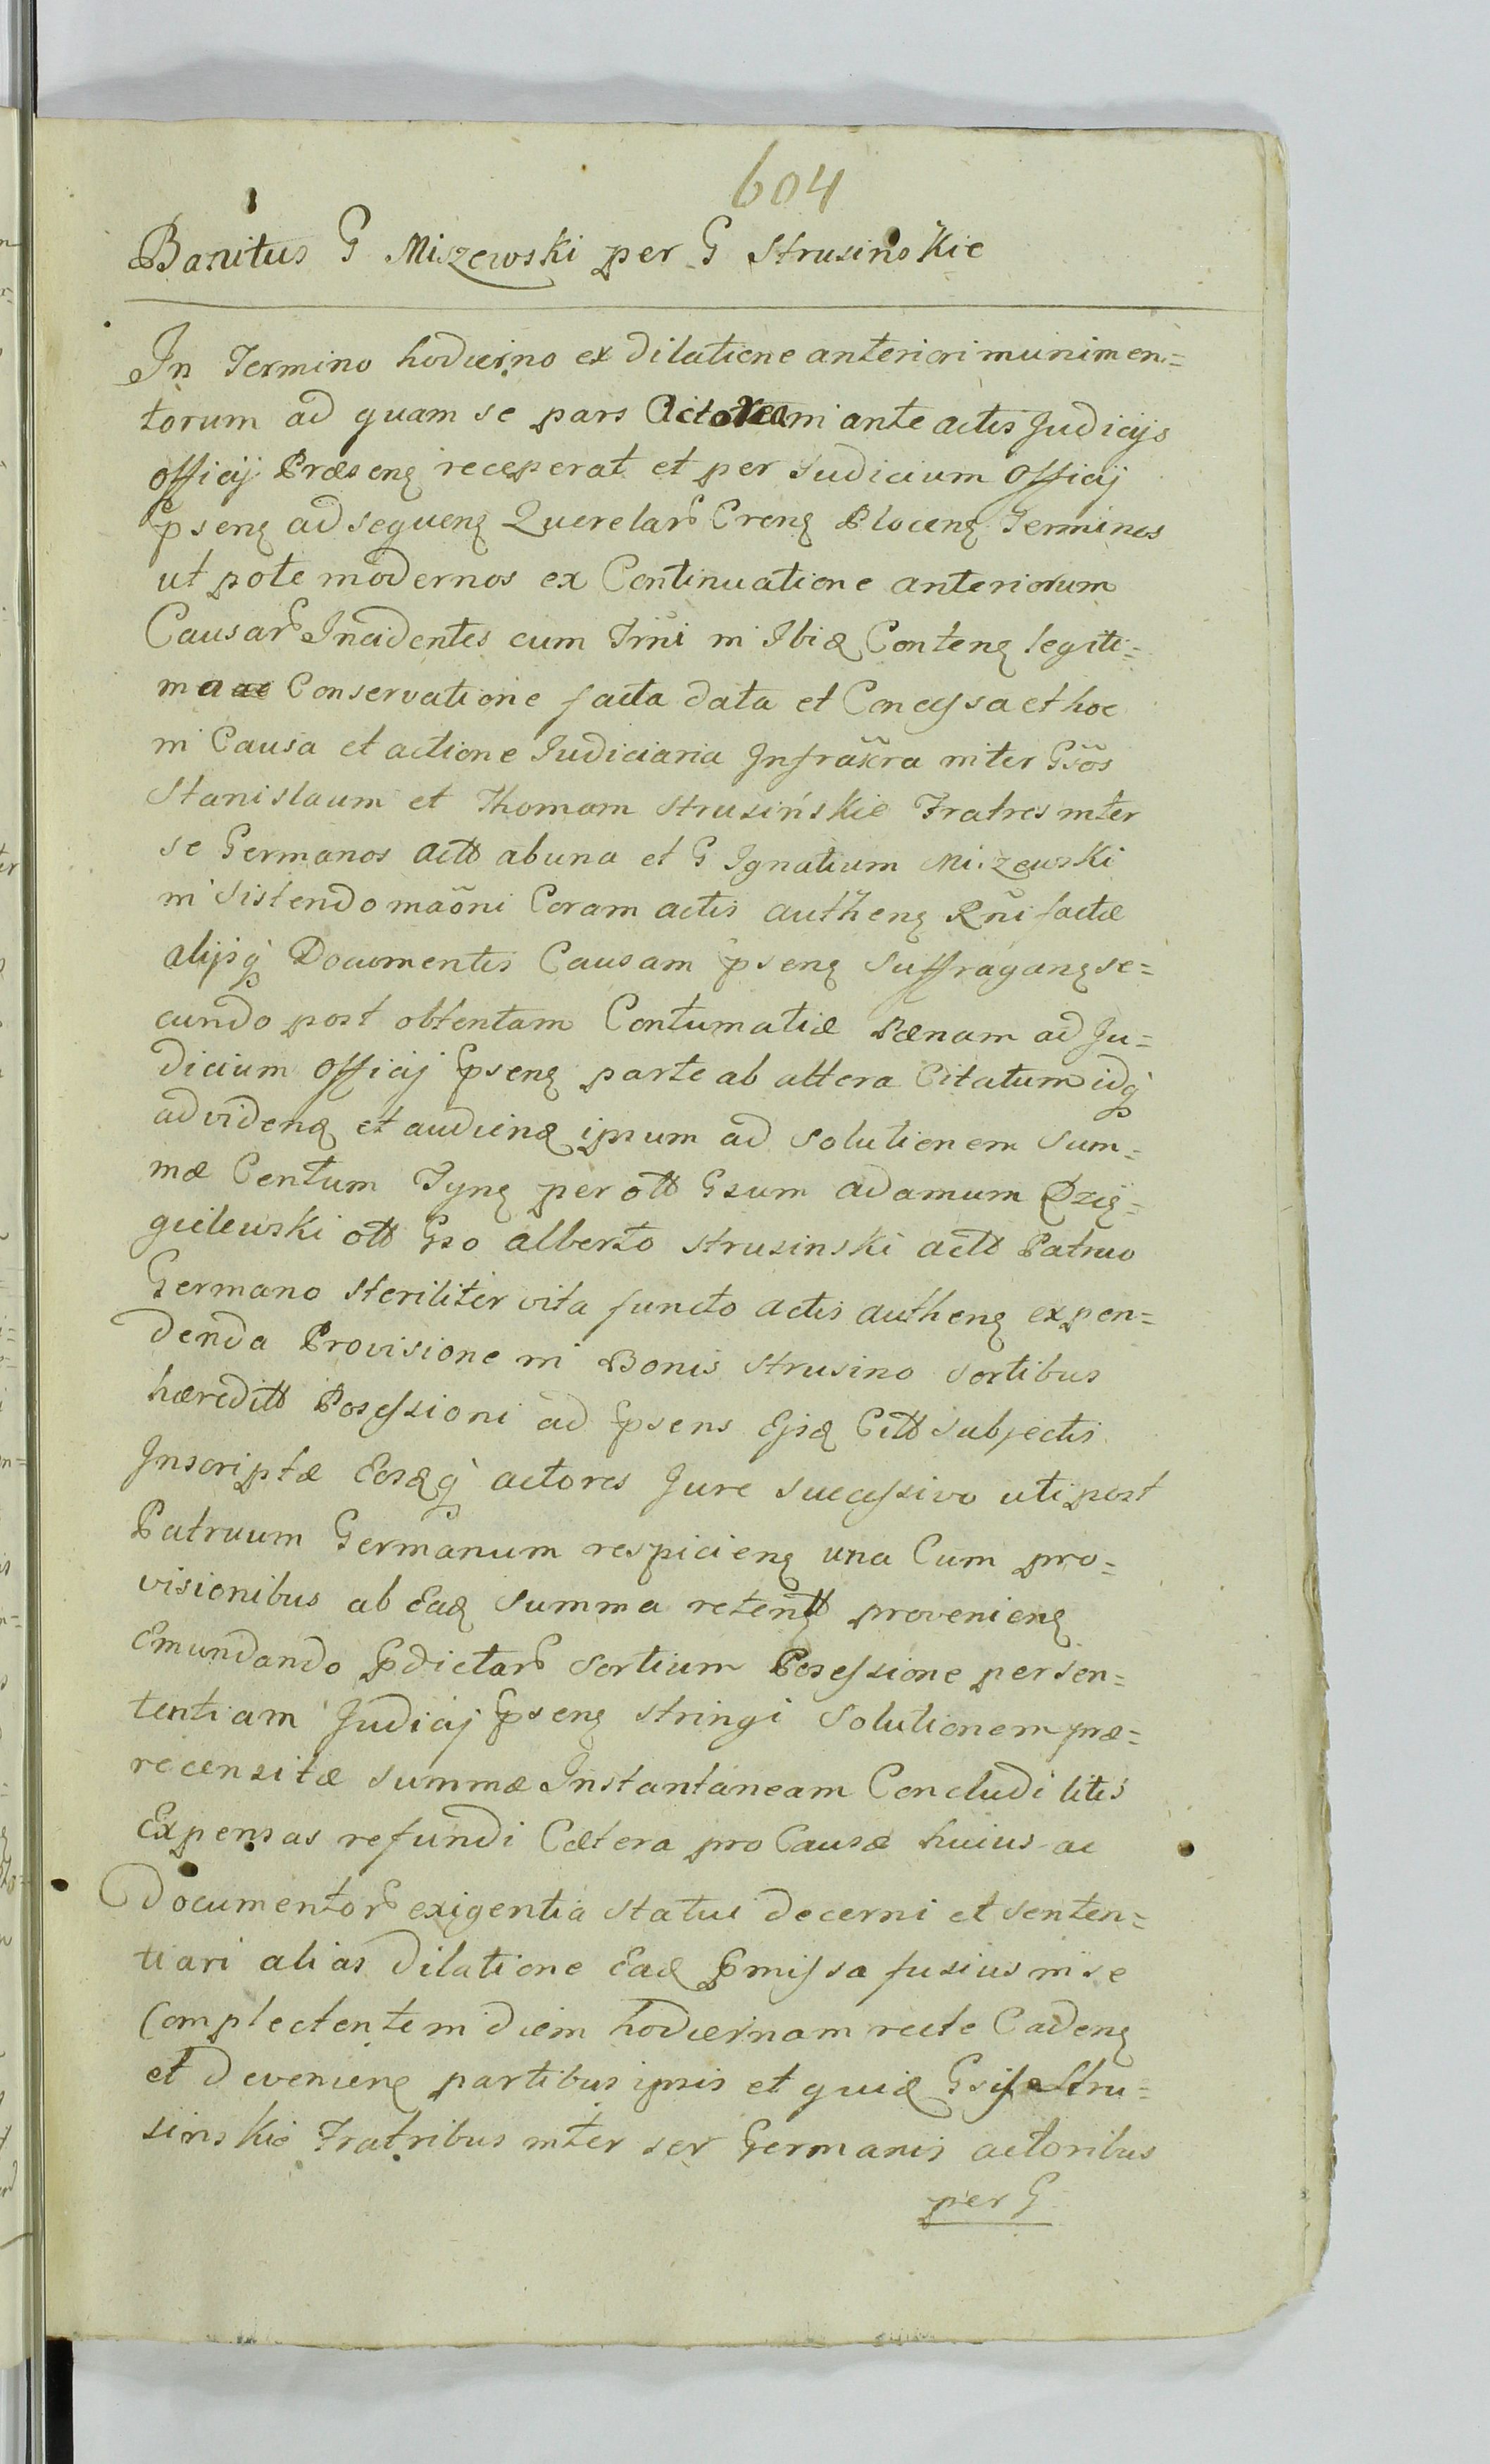 604
Banitus G Miszewski per G Strusinskie
In Termino hodierno ex dilatione anteriori munimen=
torum ad quam se pars Actorea in ante actis Judicijs
Officij Præsenę receperat et per Judicium Officij
Ꝓsenę ad sequenę Querelarꝰ Crenę Plocenę Terminos
ut pote modernos ex Continuatione anteriorum
Causarꝰ Incidentes cum Trni in Ibiꝺ Contenę legiti=
ma Conservatione facta data et Concessa et hoc
in Causa et actione Judiciaria Infrãxra inter Gsõs
Stanislaum et Thomam Strusińskie Fratres inter
se Germanos actt ab una et G Ignatium Miszewski
in Sistendo mãoni Coram actis authenę Rñi factæ
alijsq̀ Documentis Causam ꝓsenę Suffraganę se=
cundo post obtentam Contumatiæ Pænam ad Ju=
dicium Officij ꝓsenę parte ab altera Citatum idq̀
ad videnꝺ et audienꝺ ipsum ad Solutionem Sum=
mæ Centum Tynę per ott Gsum Adamum Dzię=
gielewski ott Gso Alberto Strusinski actt Patruo
Germano Steriliter vita functo actis authenę expen=
denda Provisione in Bonis Strusino Sortibus
hæreditt Possessioni ad ꝓsens Ejꝺ Citt Subjectis
Inscriptæ Eosꝺq̀ actores Jure Successivo uti post
Patruum Germanum respicienę una Cum pro=
visionibus ab Eaꝺ Summa retentt provenienę
Emundando ꝓdictarꝰ Sortium Possessione per Sen=
tentiam Judicij ꝓsenę stringi Solutionem præ=
recensitæ Summæ Instantaneam Concludi litis
Expensas refundi Cætera pro Causæ huius ac
Documentorꝰ exigentia Status decerni et Senten=
tiari alias dilatione Eaꝺ ꝓmissa fusius in se
Complectentem diem hodiernam recte Cadenę
et devenienę partibus ipsis et quiꝺ Gsis Stru=
sinskie Fratribus inter se Germanis actoribus
per G